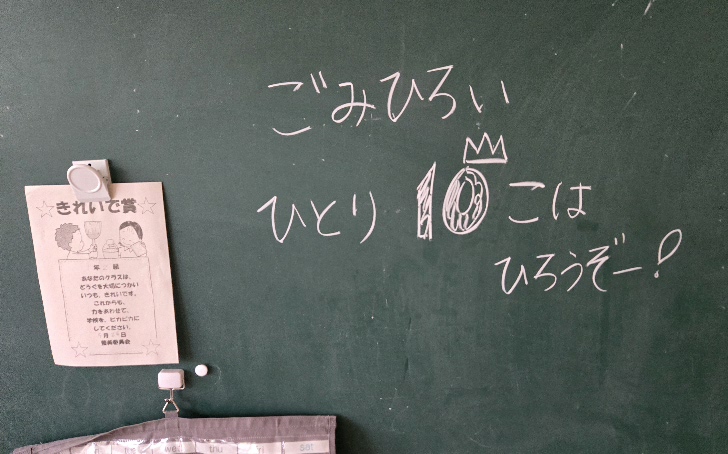 ごみひろい
ひとり 10 こは
ひろうぞー!
きれいで賞
年 組
あなたのクラスは、
どうぐを大切につかい
いつも、きれいです。
これからも、
力をあわせて、
学校を、ピカピカに
してください。
月 日
整美委員会
wed thu fri sat